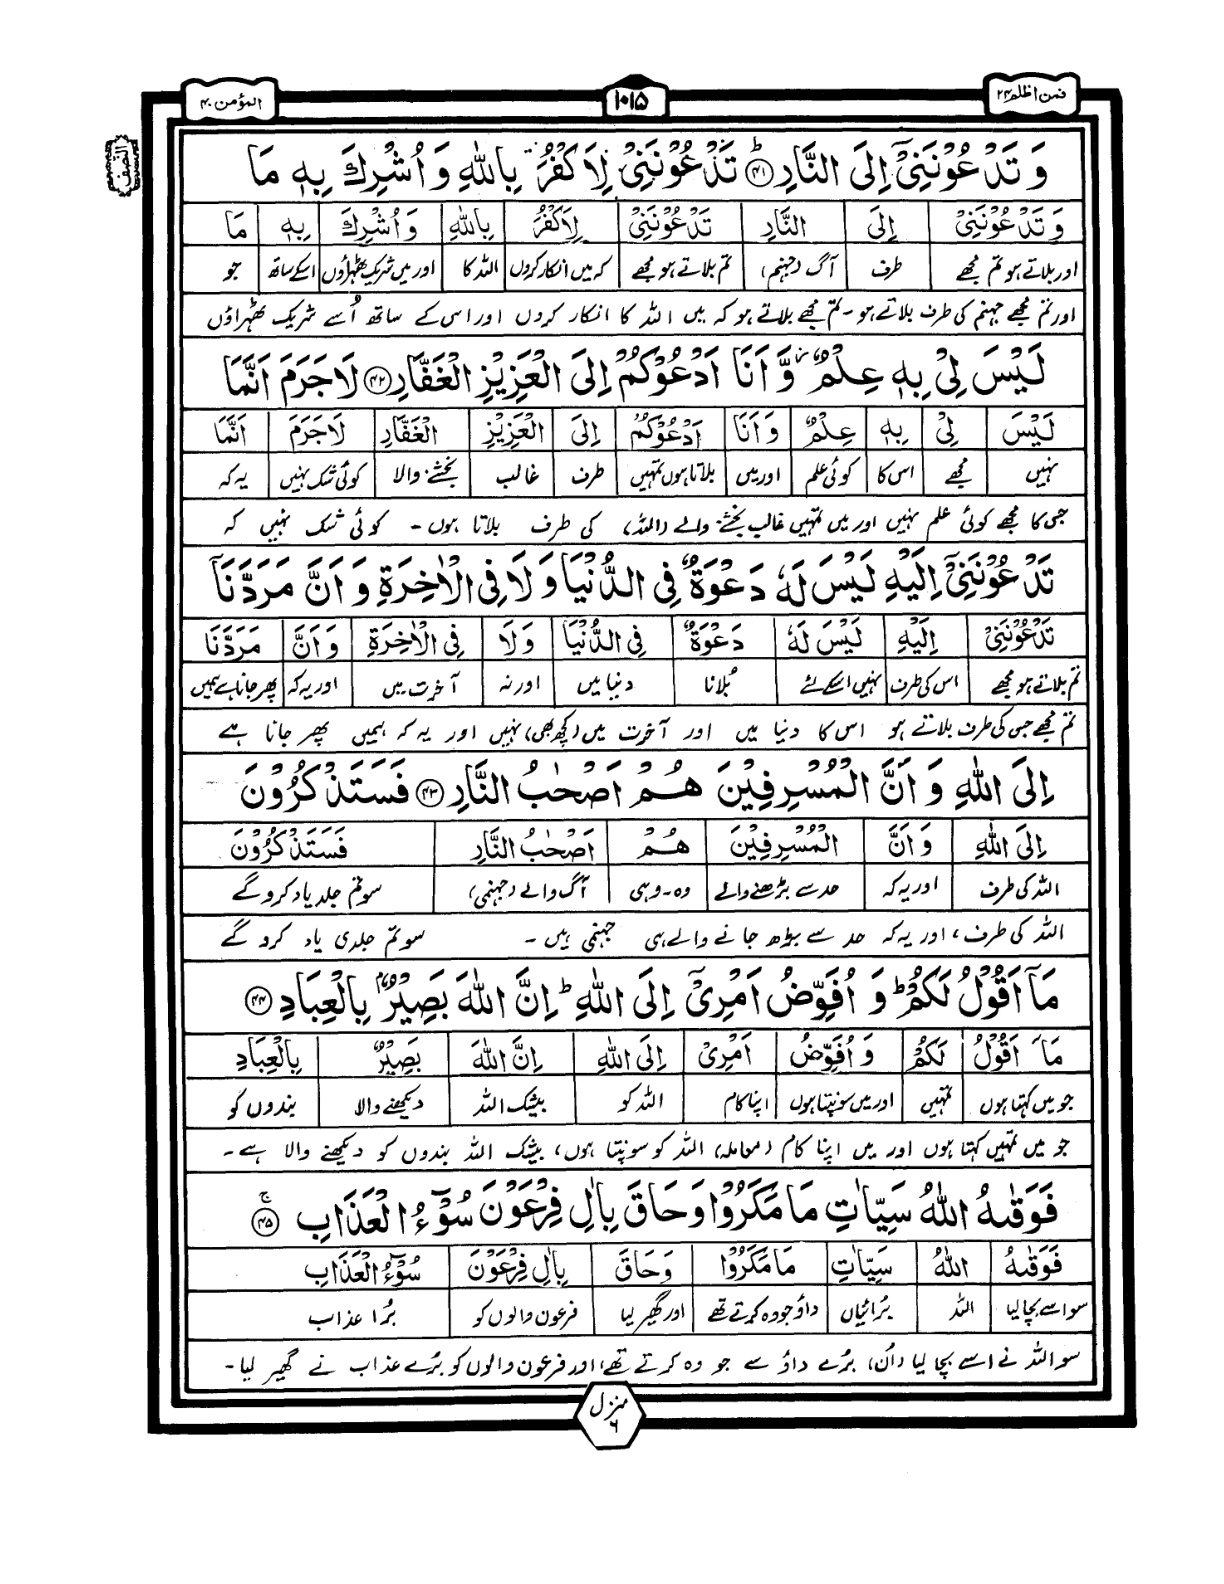 فمن اظلم ۲۴
۱۰۱۵
المؤمن ۴۰
النصف
وَ تَدْعُوْنَنِیْۤ اِلَی النَّارِ ؕ﴿۴۱﴾ تَدْعُوْنَنِیْ لِاَكْفُرَ بِاللّٰهِ وَ اُشْرِكَ بِهٖ مَا
وَ تَدْعُوْنَنِیْۤ اِلَی النَّارِ تَدْعُوْنَنِیْ لِاَكْفُرَ بِاللّٰهِ وَ اُشْرِكَ بِهٖ مَا
اور بلاتے ہو تم مجھے طرف آگ (جہنم) تم بلاتے ہو مجھے کہ میں انکار کروں اللہ کا اور میں شریک ٹھہراؤں اسکے ساتھ جو
اور تم مجھے جہنم کی طرف بلاتے ہو۔ تم مجھے بلاتے ہو کہ میں اللہ کا انکار کروں اور اس کے ساتھ اُسے شریک ٹھہراؤں
لَیْسَ لِیْ بِهٖ عِلْمٌ ؗ وَّ اَنَا اَدْعُوْكُمْ اِلَی الْعَزِیْزِ الْغَفَّارِ ﴿۴۲﴾ لَا جَرَمَ اَنَّمَا
لَیْسَ لِیْ بِهٖ عِلْمٌ وَ اَنَا اَدْعُوْكُمْ اِلَی الْعَزِیْزِ الْغَفَّارِ لَا جَرَمَ اَنَّمَا
نہیں مجھے اس کا کوئی علم اور میں بلاتا ہوں تمہیں طرف غالب بخشنے والا کوئی شک نہیں یہ کہ
جس کا مجھے کوئی علم نہیں اور میں تمہیں غالب بخشنے والے (اللہ) کی طرف بلاتا ہوں ۔ کوئی شک نہیں کہ
تَدْعُوْنَنِیْۤ اِلَیْهِ لَیْسَ لَهٗ دَعْوَةٌ فِی الدُّنْیَا وَ لَا فِی الْاٰخِرَةِ وَ اَنَّ مَرَدَّنَاۤ
تَدْعُوْنَنِیْۤ اِلَیْهِ لَیْسَ لَهٗ دَعْوَةٌ فِی الدُّنْیَا وَ لَا فِی الْاٰخِرَةِ وَ اَنَّ مَرَدَّنَا
تم بلاتے ہو مجھے اس کی طرف نہیں اسکے لئے بُلانا دنیا میں اور نہ آخرت میں اور یہ کہ پھر جانا ہے ہمیں
تم مجھے جس کی طرف بلاتے ہو اس کا دنیا میں اور آخرت میں (کچھ بھی) نہیں اور یہ کہ ہمیں پھر جانا ہے
اِلَی اللّٰهِ وَ اَنَّ الْمُسْرِفِیْنَ هُمْ اَصْحٰبُ النَّارِ ﴿۴۳﴾ فَسَتَذْكُرُوْنَ
اِلَی اللّٰهِ وَ اَنَّ الْمُسْرِفِیْنَ هُمْ اَصْحٰبُ النَّارِ فَسَتَذْكُرُوْنَ
اللہ کی طرف اور یہ کہ حد سے بڑھنے والے وہ۔ وہی آگ والے (جہنمی) سو تم جلد یاد کرو گے
اللہ کی طرف، اور یہ کہ حد سے بڑھ جانے والے ہی جہنمی ہیں ۔ سو تم جلدی یاد کرو گے
مَاۤ اَقُوْلُ لَكُمْ ؕ وَ اُفَوِّضُ اَمْرِیْۤ اِلَی اللّٰهِ ؕ اِنَّ اللّٰهَ بَصِیْرٌۢ بِالْعِبَادِ ﴿۴۴﴾
مَاۤ اَقُوْلُ لَكُمْ وَ اُفَوِّضُ اَمْرِیْۤ اِلَی اللّٰهِ اِنَّ اللّٰهَ بَصِیْرٌ بِالْعِبَادِ
جو میں کہتا ہوں تمہیں اور میں سونپتا ہوں اپنا کام اللہ کو بیشک اللہ دیکھنے والا بندوں کو
جو میں تمہیں کہتا ہوں اور میں اپنا کام (معاملہ) اللہ کو سونپتا ہوں، بیشک اللہ بندوں کو دیکھنے والا ہے۔
فَوَقٰىهُ اللّٰهُ سَیِّاٰتِ مَا مَكَرُوْا وَ حَاقَ بِاٰلِ فِرْعَوْنَ سُوْٓءُ الْعَذَابِ ۚ﴿۴۵﴾
فَوَقٰىهُ اللّٰهُ سَیِّاٰتِ مَا مَكَرُوْا وَ حَاقَ بِاٰلِ فِرْعَوْنَ سُوْٓءُ الْعَذَابِ
سو اسے بچا لیا اللہ برُائیاں داؤ جو وہ کرتے تھے اور گھیر لیا فرعون والوں کو برُا عذاب
سو اللہ نے اسے بچا لیا (اُن) برُے داؤ سے جو وہ کرتے تھے، اور فرعون والوں کو برُے عذاب نے گھیر لیا۔
منزل ۶